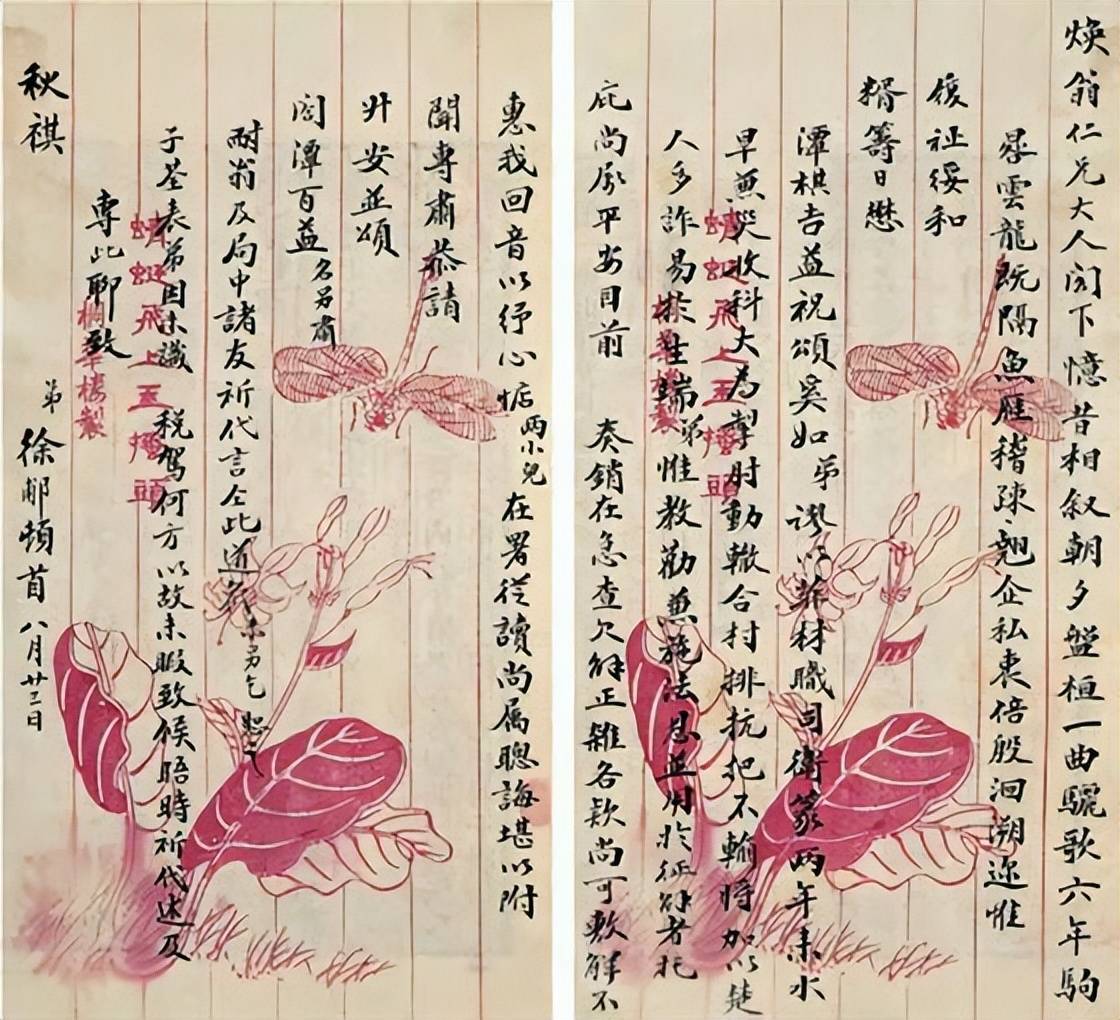 煥翁仁兄大人閣下憶昔相叙朝夕盤桓一曲驪歌六年駒
晷雲龍既隔魚雁稽疎翹企私衷倍殷洄溯迩惟
履祉綏和
籌日懋
潭棋吉益祝頌奚如弟謬以軨材職司衝篆兩年来水
旱無災收科大為掣肘動輒合村排抗犯不輸將加以楚
人多詐易於生端弟惟教勸兼施法恩並用於征解者犯
庇尚承平安目前 奏銷在急查欠解正雜各款尚可敷解不
惠我回音以紓心惦兩小兒在署從讀尚属聰誨堪以附
聞專肅恭請
升安並頌
閤潭百益名另肅
耐翁及局中諸友祈代言仝此道候未另乞恕之
子荃表弟因未識 税駕何方以故未暇致候晤時祈代述及
專此聊致
秋祺
弟徐郙頓首八月廿三日
蜻蜓飛上玉搔頭
蜻蜓飛上玉搔頭